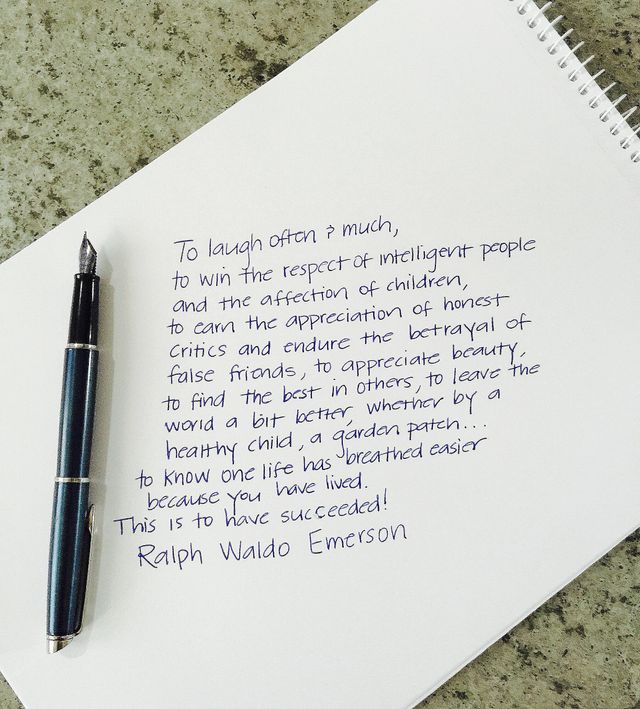 To laugh often & much,
to win the respect of intelligent people
and the affection of children,
to earn the appreciation of honest
critics and endure the betrayal of
false friends, to appreciate beauty,
to find the best in others, to leave the
world a bit better, whether by a
healthy child, a garden patch...
to know one life has breathed easier
because you have lived.
This is to have succeeded!
Ralph Waldo Emerson